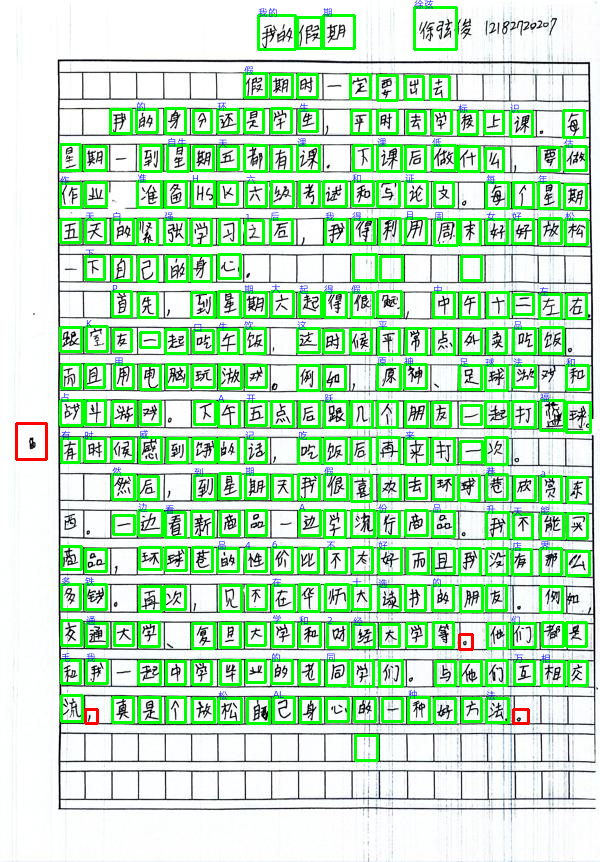 我的假期 徐弦俊 12182720207
假期时一定要出去
我的身分还是学生，平时去学校上课。每
星期一到星期五都有课。下课后做什么，要做
作业、准备HSK六级考试和写论文。每个星期
五天的紧张学习之后，我得利用周末好好放松
一下自己的身心。
首先，到星期六起得很晚，中午十二左右。
跟室友一起吃午饭，这时候平常点外卖吃饭。
而且用电脑玩游戏。例如，原神、足球游戏和
战斗游戏。下午五点后跟几个朋友一起打篮球。
有时候感到饿的话，吃饭后再来打一次。
然后，到星期天我很喜欢去环球巷欣赏东
西。一边看新商品一边学流行商品。我不能买
商品，环球巷的性价比不太好而且我没有那么
多钱。再次，见不在华师大读书的朋友。例如，
交通大学、复旦大学和财经大学等。他们都是
和我一起中学毕业的老同学们。与他们互相交
流，真是个放松自己身心的一种好方法。